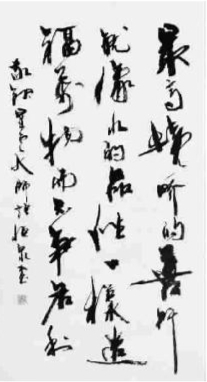 最高境界的善行
就像水的品性一樣造
福萬物而不爭名利
敬錄星雲大師語